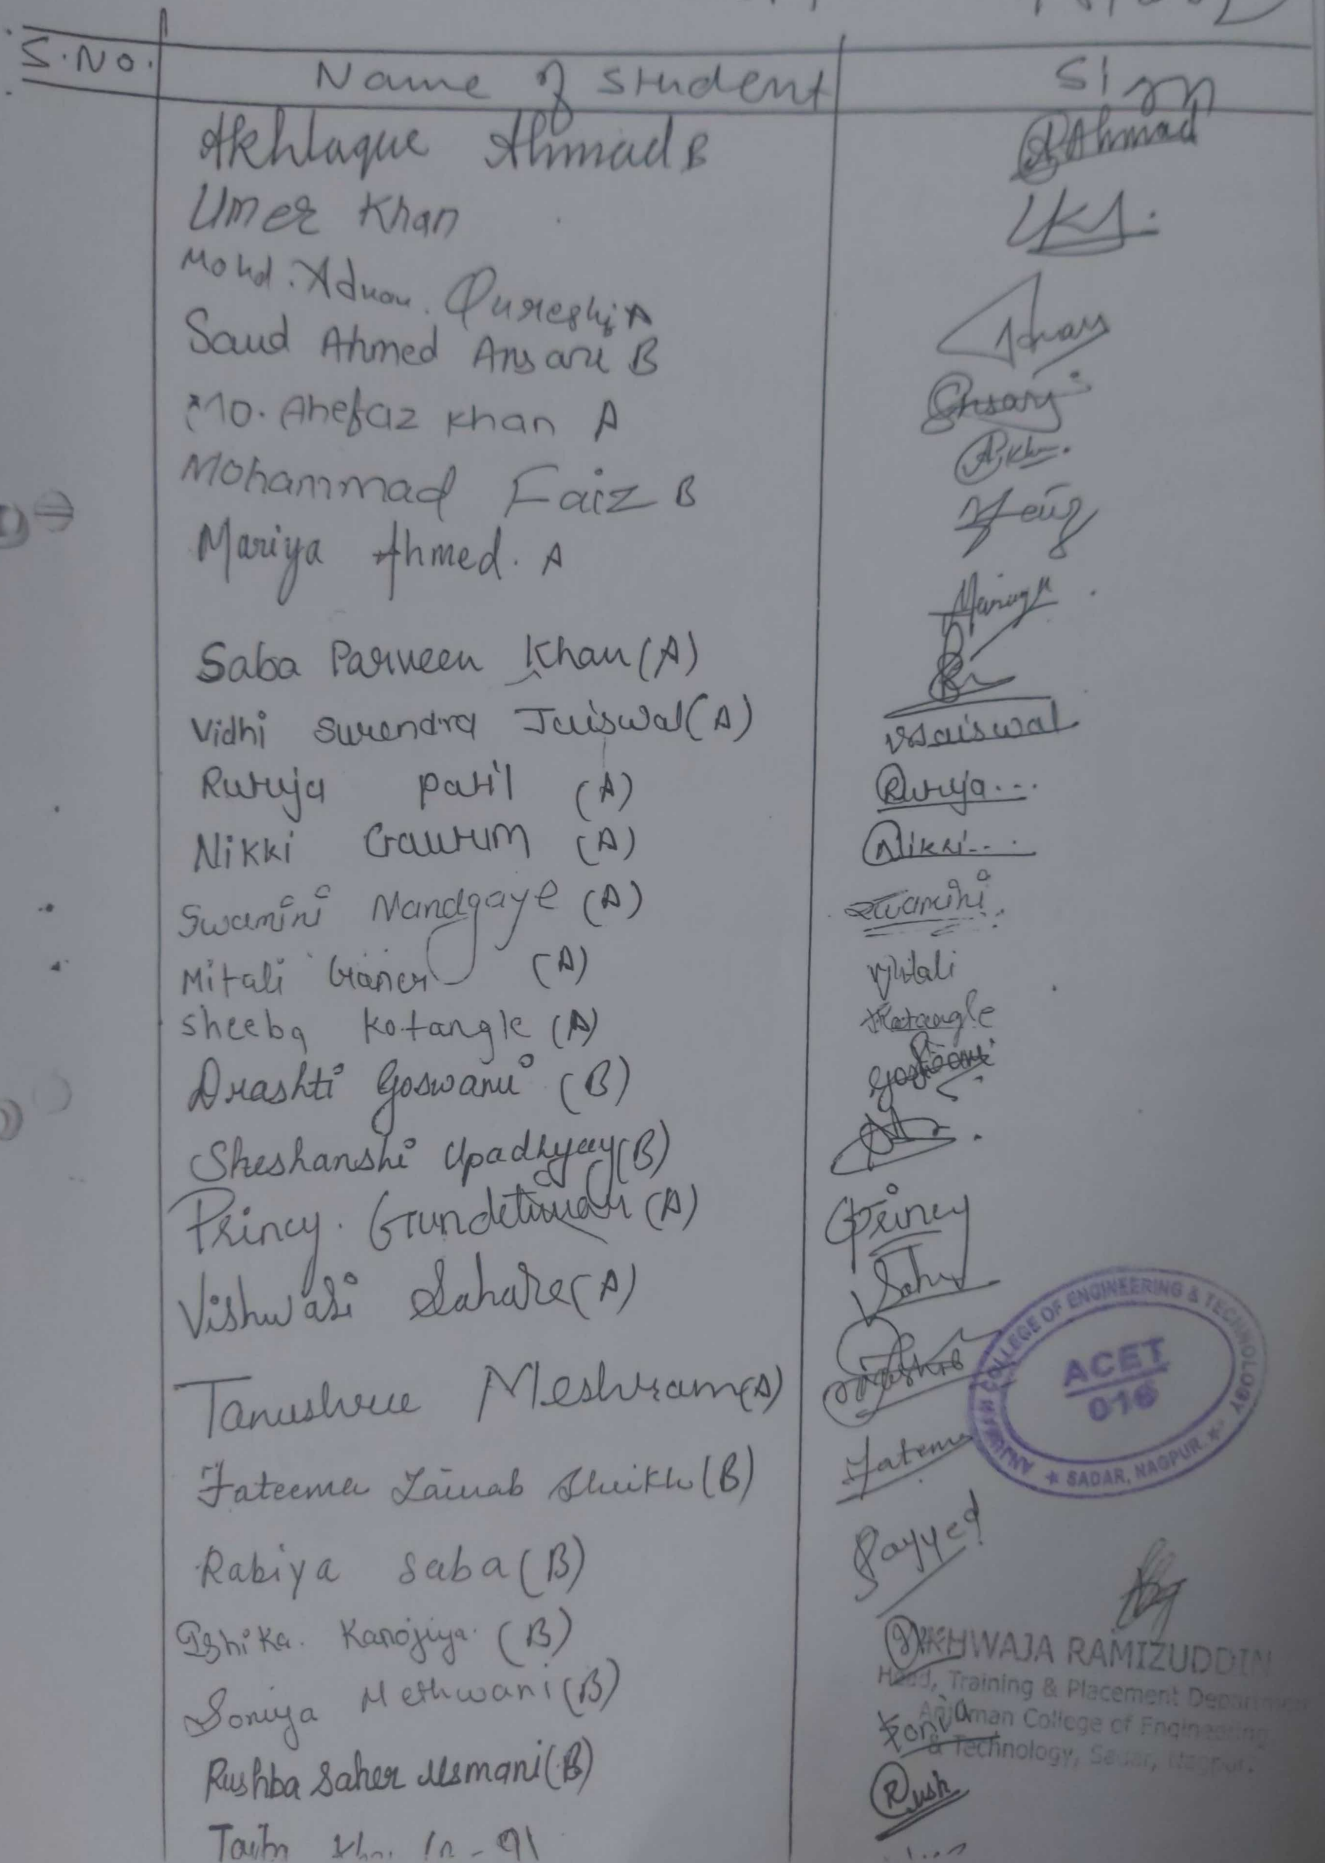 S.No. Name of student Sign
Akhlaque Ahmad B Ahmad
Umer Khan
Mohd. Adnan. Qureshi A
Saud Ahmed Ansari B Ansari
Mo. Ahefaz Khan A
Mohammad Faiz B
Mariya Ahmed. A Mariya
Saba Parveen Khan (A)
Vidhi Surendra Jaiswal (A) VSJaiswal
Rutuja Patil (A) Rutuja...
Nikki Gautum (A) Nikki...
Swamini Mandgaye (A) Swamini
Mitali Ganer (A) Mitali
Sheeba Kotangle (A) Kotangle
Drashti Goswami (B) Goswami
Sheshanshi Upadhyay (B)
Princy. (A) Princy
Vishwasi Sahare (A)
Tanushree Meshram (A)
Fateema Zainab Sheikh (B) Fatema
Rabiya Saba (B) Sayyed
Ishika. Kanojiya. (B)
Soniya Methwani (B) Soniya
Rushba Saher Usmani (B) Rush
ANJUMAN COLLEGE OF ENGINEERING & TECHNOLOGY
ACET
016
★ SADAR, NAGPUR. ★
KHWAJA RAMIZUDDIN
Head, Training & Placement Department
Anjuman College of Engineering
& Technology, Sadar, Nagpur.